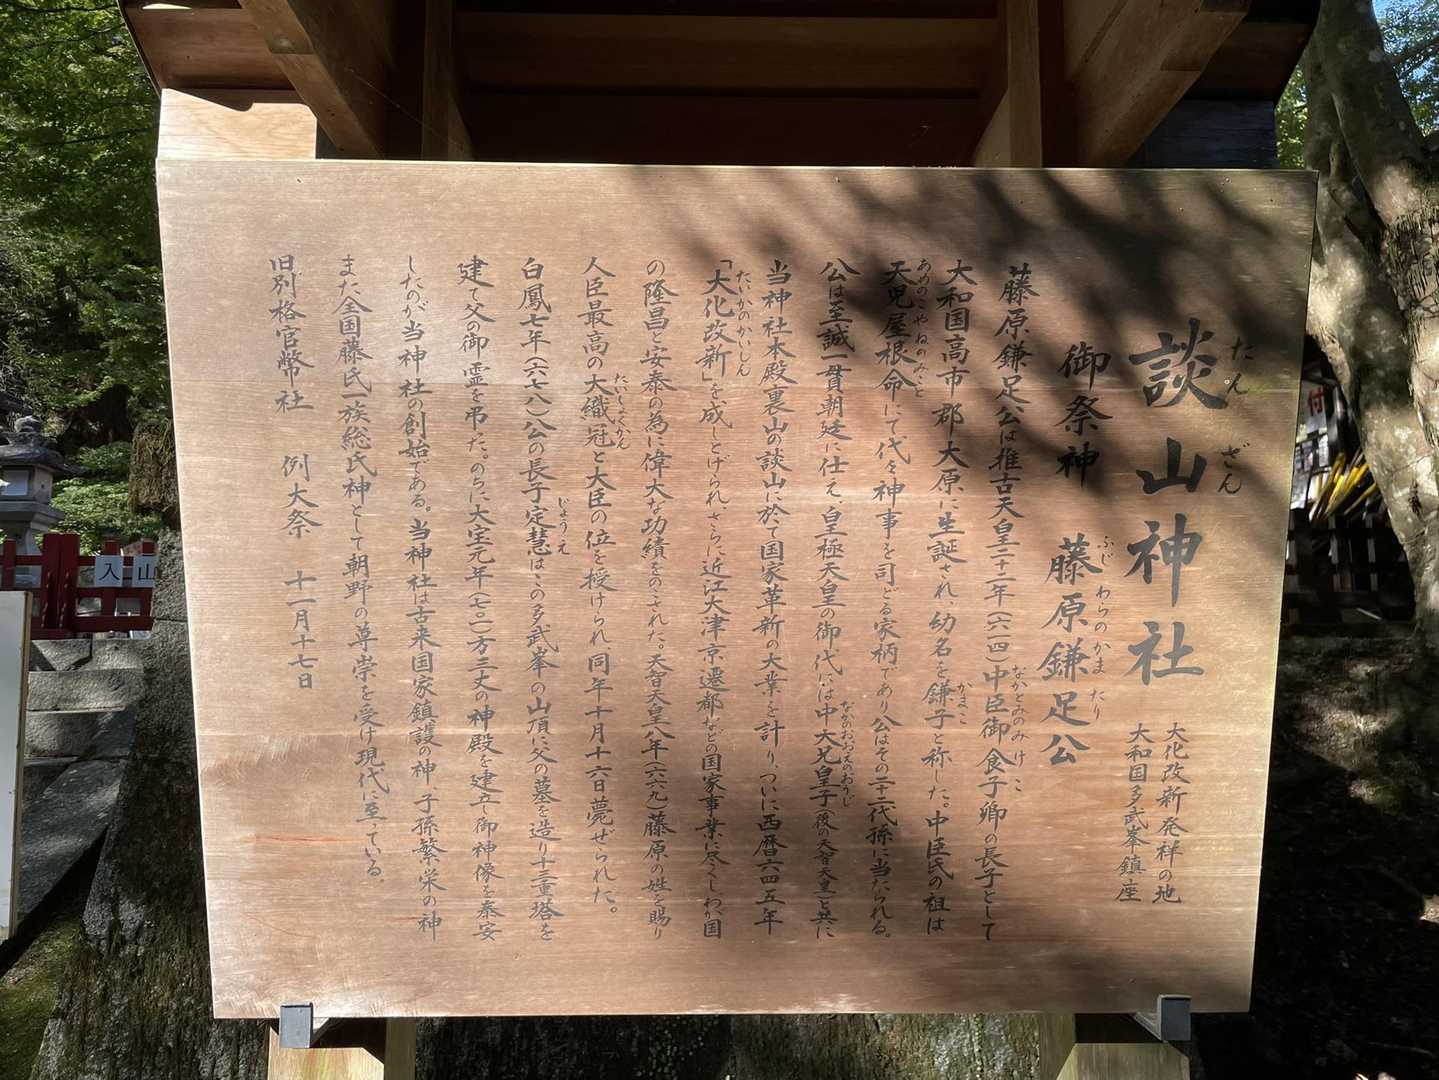 談山神社
たんざん
大化改新発祥の地
大和国多武峯鎮座
御祭神 藤原鎌足公
ふじわらのかまたり
藤原鎌足公は推古天皇二十二年(六一四)中臣御食子卿の長子として
なかとみのみけこ
大和国高市郡大原に生誕され、幼名を鎌子と称した。中臣氏の祖は
かまこ
天児屋根命にて代々神事を司どる家柄であり公はその二十二代孫に当たられる。
あめのこやねのみこと
公は至誠一貫朝廷に仕え、皇極天皇の御代には中大兄皇子(後の天智天皇)と共に
なかのおおえのおうじ
当神社本殿裏山の談山に於て国家革新の大業を計り、ついに西暦六四五年
「大化改新」を成しとげられ、さらに近江大津京遷都などの国家事業に尽くし、わが国
たいかのかいしん
の隆昌と安泰の為に偉大な功績をのこされた。天智天皇八年(六六九)藤原の姓を賜り
人臣最高の大織冠と大臣の位を授けられ、同年十月十六日薨ぜられた。
たいしょくかん
白鳳七年(六七八)公の長子定慧はこの多武峯の山頂に父の墓を造り十三重塔を
じょうえ
建て父の御霊を弔た。のちに大宝元年(七〇一)方三丈の神殿を建立し御神像を奉安
したのが当神社の創始である。当神社は古来国家鎮護の神・子孫繁栄の神
また全国藤氏一族総氏神として朝野の尊崇を受け現代に至っている。
旧別格官幣社 例大祭 十一月十七日
入山
付